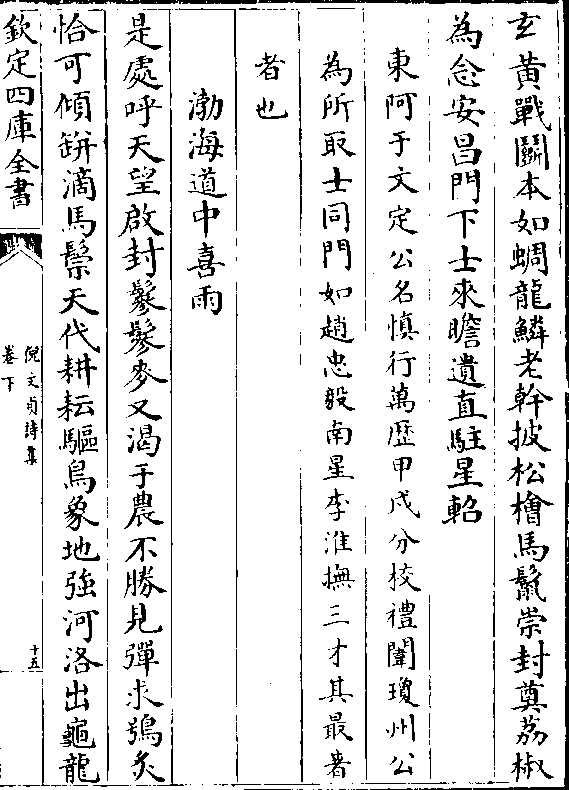 玄黃戰鬭本如蜩龍鱗老幹披松檜馬鬛崇封奠荔椒
為念安昌門下士來瞻遺直駐星軺
東阿于文定公名慎行萬歴甲戌分校禮闈瓊州公
為所取士同門如趙忠毅南星李淮撫三才其最著
者也
渤海道中喜雨
是處呼天望啟封鬖鬖麥又渴于農不勝見彈求鴞炙
恰可傾缾滴馬鬃天代耕耘驅鳥象地強河洛出龜龍
欽定四庫全書
倪文貞詩集
卷下
十五